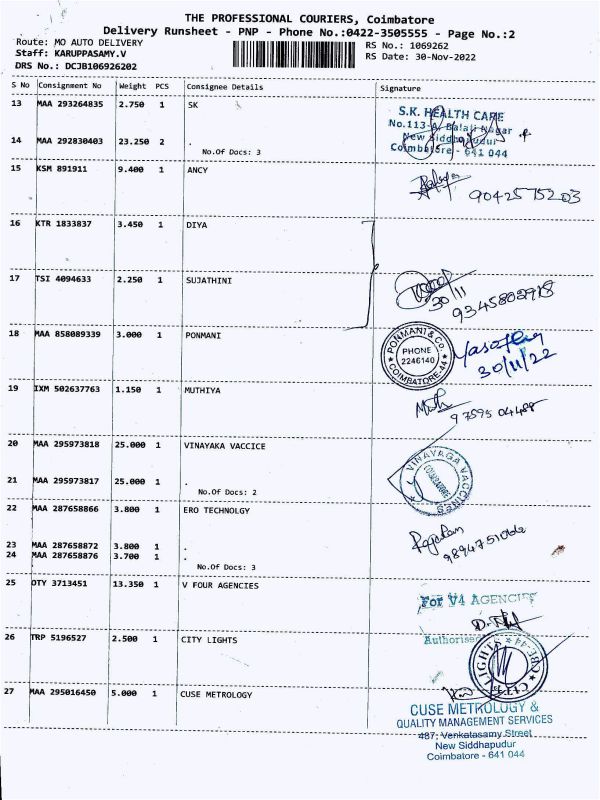 THE PROFESSIONAL COURIERS, Coimbatore
Delivery Runsheet - PNP - Phone No.:0422-3505555 - Page No.:2
Route: MO AUTO DELIVERY
RS No.: 1069262
Staff: KARUPPASAMY.V
RS Date: 30-Nov-2022
DRS No.: DCJB106926202
S No Consignment No Weight PCS Consignee Details Signature
13 MAA 293264835 2.750 1 SK
S.K. HEALTH CARE
No.113-A, Balaji Nagar
New Siddhapudur
Coimbatore - 641 044
14 MAA 292830403 23.250 2 .
No.Of Docs: 3
15 KSM 891911 9.400 1 ANCY
9042575203
16 KTR 1833837 3.450 1 DIYA
17 TSI 4094633 2.250 1 SUJATHINI
30/11
9345802918
18 MAA 858089339 3.000 1 PONMANI
PONMANI & Co.
PHONE
2246140
COIMBATORE-44
30/11/22
19 IXM 502637763 1.150 1 MUTHIYA
97595 04488
20 MAA 295973818 25.000 1 VINAYAKA VACCICE
VINAYAGA VACCINES
COIMBATORE
21 MAA 295973817 25.000 1 .
No.Of Docs: 2
22 MAA 287658866 3.800 1 ERO TECHNOLGY
23 MAA 287658872 3.800 1 .
24 MAA 287658876 3.700 1 .
No.Of Docs: 3
25 OTY 3713451 13.350 1 V FOUR AGENCIES
For V4 AGENCIES
26 TRP 5196527 2.500 1 CITY LIGHTS
Authorise
CITY LIGHTS
CBE-44
27 MAA 295016450 5.000 1 CUSE METROLOGY
CUSE METROLOGY &
QUALITY MANAGEMENT SERVICES
487, Venkatasamy Street
New Siddhapudur
Coimbatore - 641 044